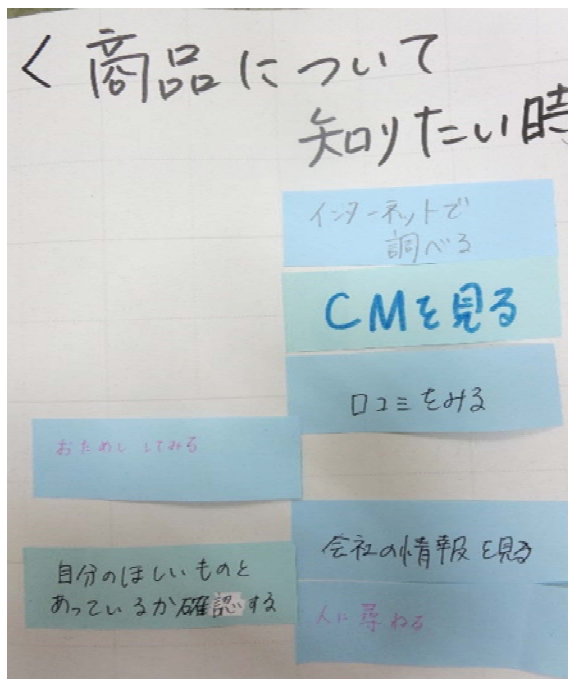 ＜商品について
知りたい時
インターネットで
調べる
CMを見る
口コミをみる
おためししてみる
会社の情報を見る
自分のほしいものと
あっているか確認する
人に尋ねる